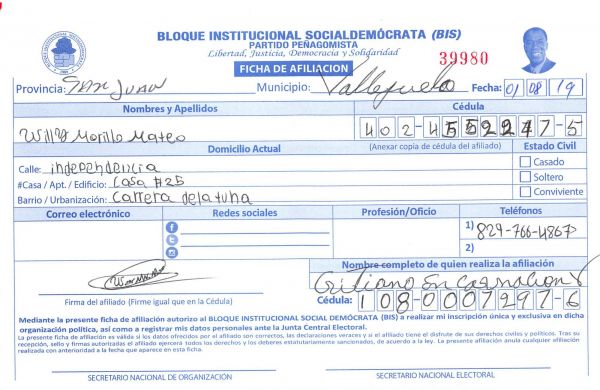 BLOQUE INSTITUCIONAL SOCIALDEMÓCRATA (BIS)
PARTIDO PEÑAGOMISTA
Libertad, Justicia, Democracia y Solidaridad
39980
FICHA DE AFILIACION
Provincia: San Juan Municipio: Vallejuelo Fecha: 01/08/19
Nombres y Apellidos Cédula
Willy Morillo Mateo 402-4552247-5
Domicilio Actual (Anexar copia de cédula del afiliado) Estado Civil
Calle: independencia Casado
#Casa / Apt. / Edificio: Casa #25 Soltero
Barrio / Urbanización: Carrera delatuna Conviviente
Correo electrónico Redes sociales Profesión/Oficio Teléfonos
1) 829-766-4867
2)
Nombre completo de quien realiza la afiliación
Firma del afiliado (Firme igual que en la Cédula)
Cédula: 108-0007297-6
Mediante la presente ficha de afiliación autorizo al BLOQUE INSTITUCIONAL SOCIAL DEMÓCRATA (BIS) a realizar mi inscripción única y exclusiva en dicha
organización política, así como a registrar mis datos personales ante la Junta Central Electoral.
La presente ficha de afiliación es válida si los datos ofrecidos por el afiliado son correctos, las declaraciones veraces y si el afiliado tiene el disfrute de sus derechos civiles y políticos. Tras su
recepción, sello y firmas autorizadas el afiliado ejercerá todos los derechos y los deberes estatutariamente sancionados, de acuerdo a la ley. La presente afiliación anula cualquier afiliación
realizada con anterioridad a la fecha que aparece en esta ficha.
SECRETARIO NACIONAL DE ORGANIZACIÓN SECRETARIO NACIONAL ELECTORAL